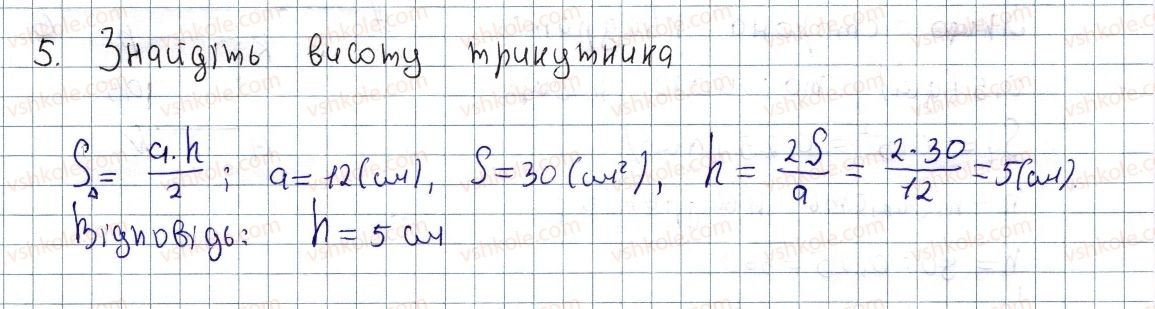 5. Знайдіть висоту трикутника
S△ = a·h/2; a = 12 (см), S = 30 (см²), h = 2S/a = 2·30/12 = 5 (см).
Відповідь: h = 5 см